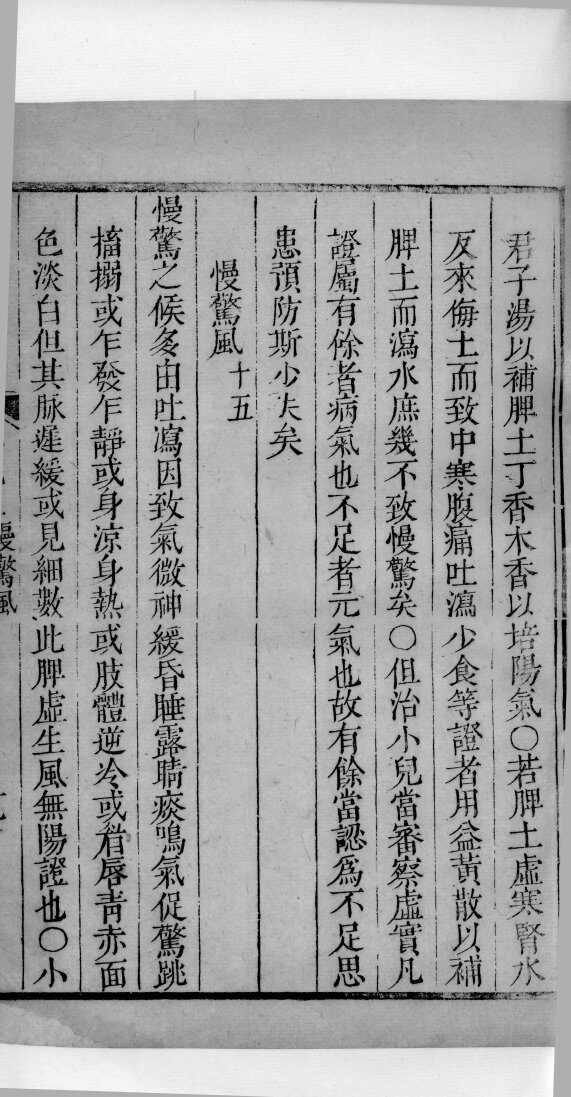 君子湯以補脾土丁香木香以培陽氣〇若脾土虛寒腎水
反來侮土而致中寒腹痛吐瀉少食等證者用益黃散以補
脾土而瀉水庶幾不致慢驚矣〇但治小兒當審察虛實凡
證屬有餘者病氣也不足者元氣也故有餘當認爲不足思
患預防斯少失矣
慢驚風十五
慢驚之候多由吐瀉因致氣微神緩昏睡露睛痰鳴氣促驚跳
搐搦或乍發乍靜或身涼身熱或肢體逆冷或眉唇青赤面
色淡白但其脉遲緩或見細數此脾虛生風無陽證也〇小
慢驚風